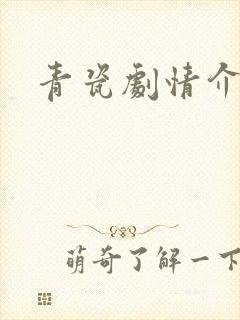 青瓷劇情介
萌奇了解一下